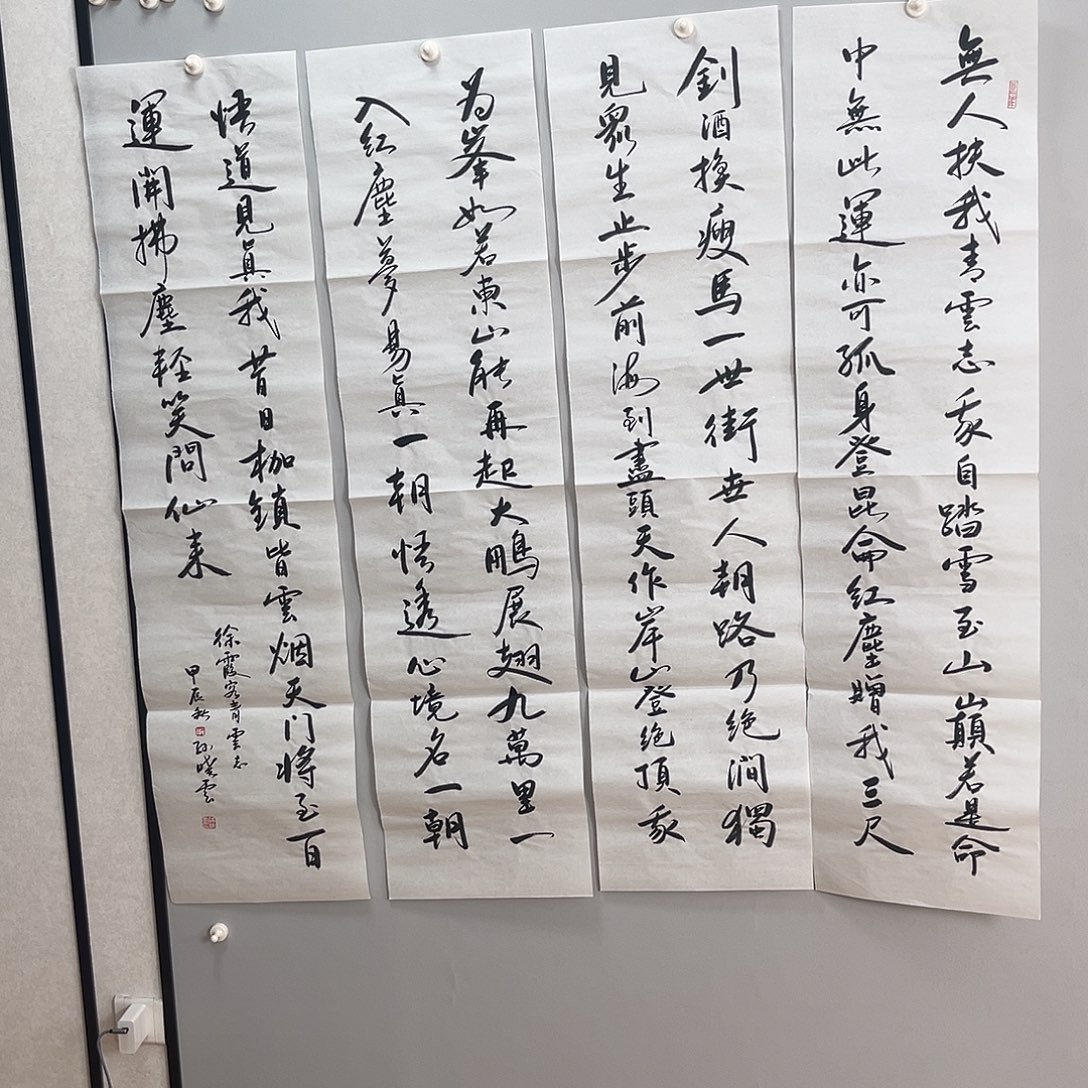 無人扶我青雲志我自踏雪至山山巔若是命
中無此運亦可孤身登昆侖紅塵贈我三尺
劍酒換瘦馬一世街世人朝路乃絕澗獨
見眾生止步前海到盡頭天作岸山登絕頂我
為峯如若東山能再起大鵬展翅九萬里一
入紅塵夢易真一朝悟透心境名一朝
悟道見真我昔日枷鎖皆雲烟天門將至百
運開拂塵輕笑問仙來
徐霞客青雲志
甲辰秋 孫曉雲